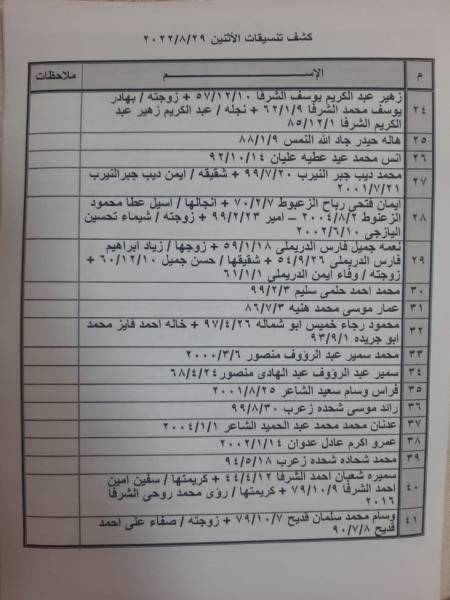 كشف تنسيقات الأثنين ٢٠٢٢/٨/٢٩
م الإســـم ملاحظات
٢٤ زهير عبد الكريم يوسف الشرفا ٥٧/١٢/١٠ + زوجته / بهادر
يوسف محمد الشرفا ٦٢/١/٩ + نجله / عبد الكريم زهير عبد
الكريم الشرفا ٨٥/١٢/١
٢٥ هاله حيدر جاد الله النمس ٨٨/١/٩
٢٦ انس محمد عيد عطيه عليان ٩٢/١٠/١٤
٢٧ محمد ديب جبر النيرب ٩٩/٧/٢٠ + شقيقه / ايمن ديب جبرالنيرب
٢٠٠١/٧/٢١
٢٨ ايمان فتحى رباح الزعبوط ٧٠/٢/٧ + انجالها / اسيل عطا محمود
الزعنوط ٢٠٠٤/٨/٢ – امير ٩٩/٢/٢٣ + زوجته / شيماء تحسين
اليازجي ٢٠٠٢/٦/١٠
٢٩ نعمه جميل فارس الدريملى ٥٩/١/١٨ + زوجها / زياد ابراهيم
فارس الدريملى ٥٤/٩/٢٦ + شقيقها / حسن جميل ٦٠/١٢/١٠ +
زوجته / وفاء ايمن الدريملى ٦١/١/١
٣٠ محمد احمد حلمى سليم ٩٩/٢/٣
٣١ عمار موسى محمد هنيه ٨٦/٧/٣
٣٢ محمود رجاء خميس ابو شماله ٩٧/٤/٢٦ + خاله احمد فايز محمد
ابو جريده ٩٣/٩/١
٣٣ محمد سمير عبد الرؤوف منصور ٢٠٠٠/٣/٦
٣٤ سمير عبد الرؤوف عبد الهادى منصور ٦٨/٤/٢٤
٣٥ فراس وسام سعيد الشاعر ٢٠٠١/٨/٢٥
٣٦ رائد موسى شحده زعرب ٩٩/٨/٣٠
٣٧ عدنان محمد محمد عبد الحميد الشاعر ٢٠٠٤/١/١
٣٨ عمرو اكرم عادل عدوان ٢٠٠٢/١/١٤
٣٩ محمد شحاده شحده زعرب ٩٤/٥/١٨
٤٠ سميره شعبان احمد الشرفا ٤٤/٤/١٢ + كريمتها / سفين امين
احمد الشرفا ٧٩/١٠/٩ + كريمتها / رؤى محمد روحى الشرفا
٢٠١٦
٤١ وسام محمد سلمان فديح ٧٩/١٠/٧ + زوجته / صفاء على احمد
فديح ٩٠/٧/٨